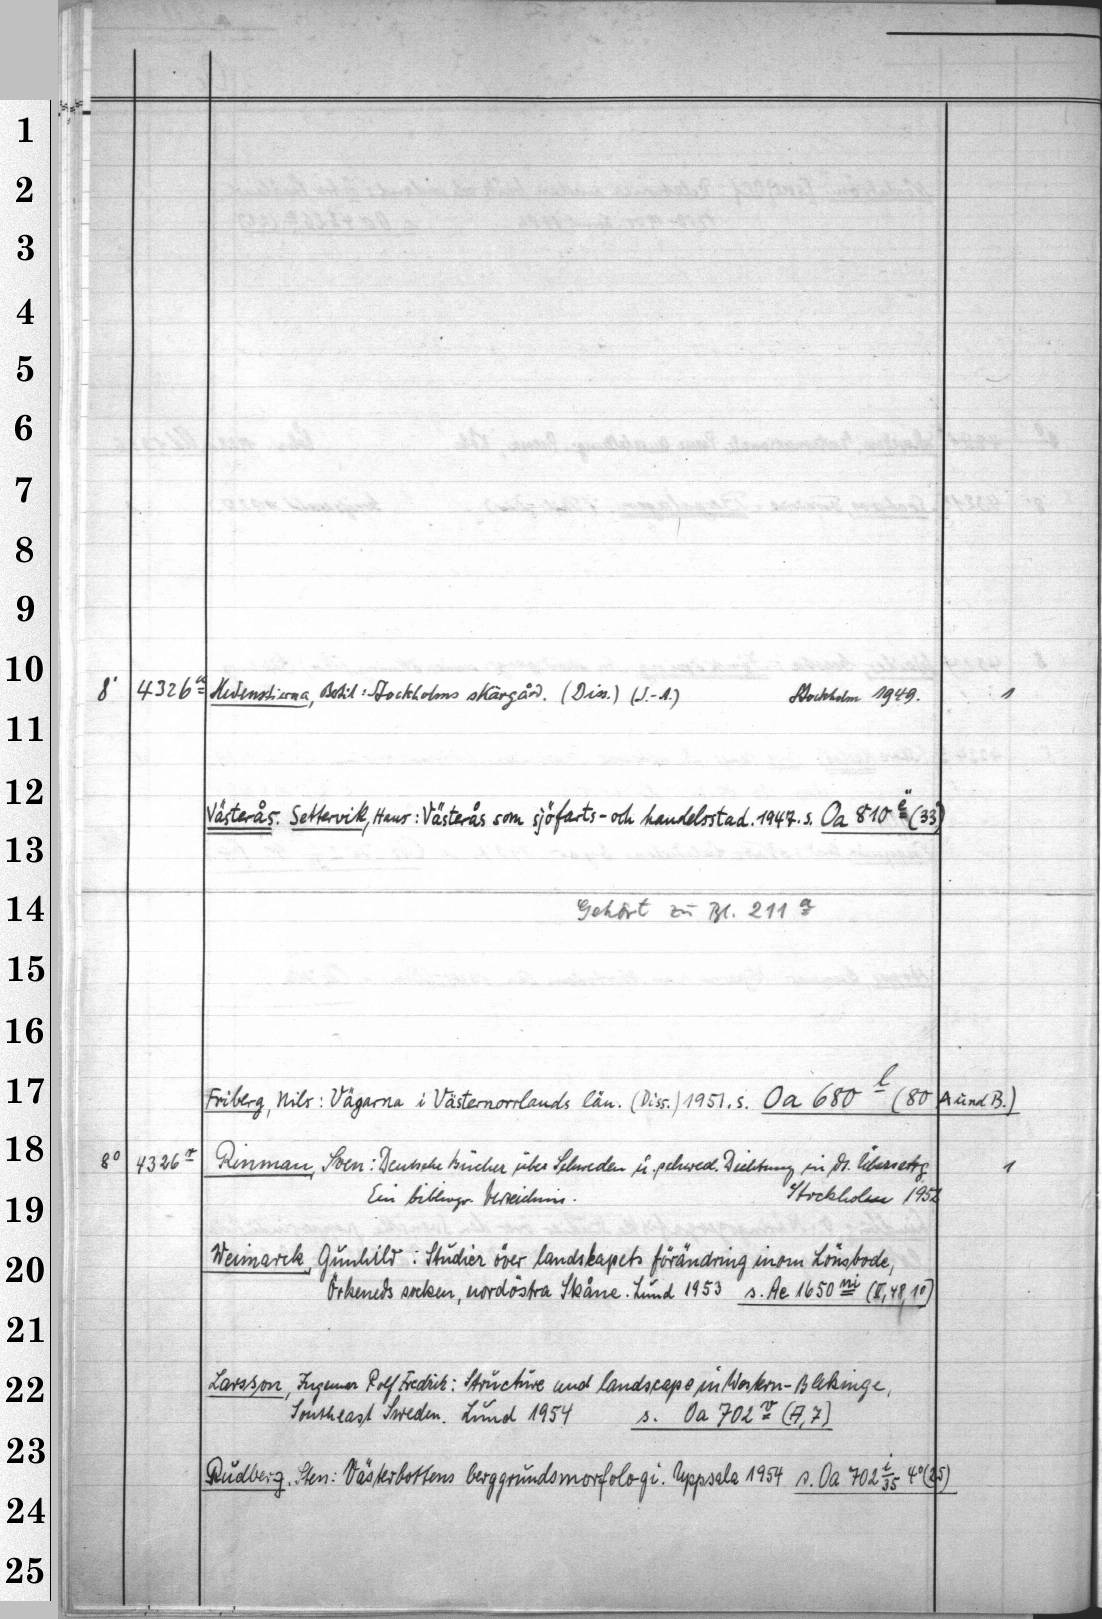 1
2
3
4
5
6
7
8
9
10
8° 4326 Hedenstierna, Botil: Stockholms skärgård. (Diss.) (S.-A.) Stockholm 1949. 1
11
12
Västerås. Settervik, Hans: Västerås som sjöfarts- och handelsstad. 1947. s. Oa 810 e (33)
13
14 Gehört zu Bl. 211 a
15
16
17 Friberg, Nils: Vägarna i Västernorrlands län. (Diss.) 1951. s. Oa 680 l (80 A und B.)
18 8° 4326 v Rinman, Sven: Deutsche Bücher über Schweden u. schwed. Dichtung in dt. Übersetzg. 1
Ein bibliogr. Verzeichnis. Stockholm 1952
19
Weimarck, Gunhild: Studier över landskapets förändring inom Lönsboda,
20
Örkeneds socken, nordöstra Skåne. Lund 1953 s. Ae 1650 ni (II, 48, 10)
21
22 Larsson, Ingemar Rolf Fredrik: Structure and landscape in Western-Blekinge,
Southeast Sweden. Lund 1954 s. Oa 702 v (A, 7)
23
Rudberg, Sten: Västerbottens berggrundsmorfologi. Uppsala 1954 s. Oa 702 i/35 4° (25)
24
25